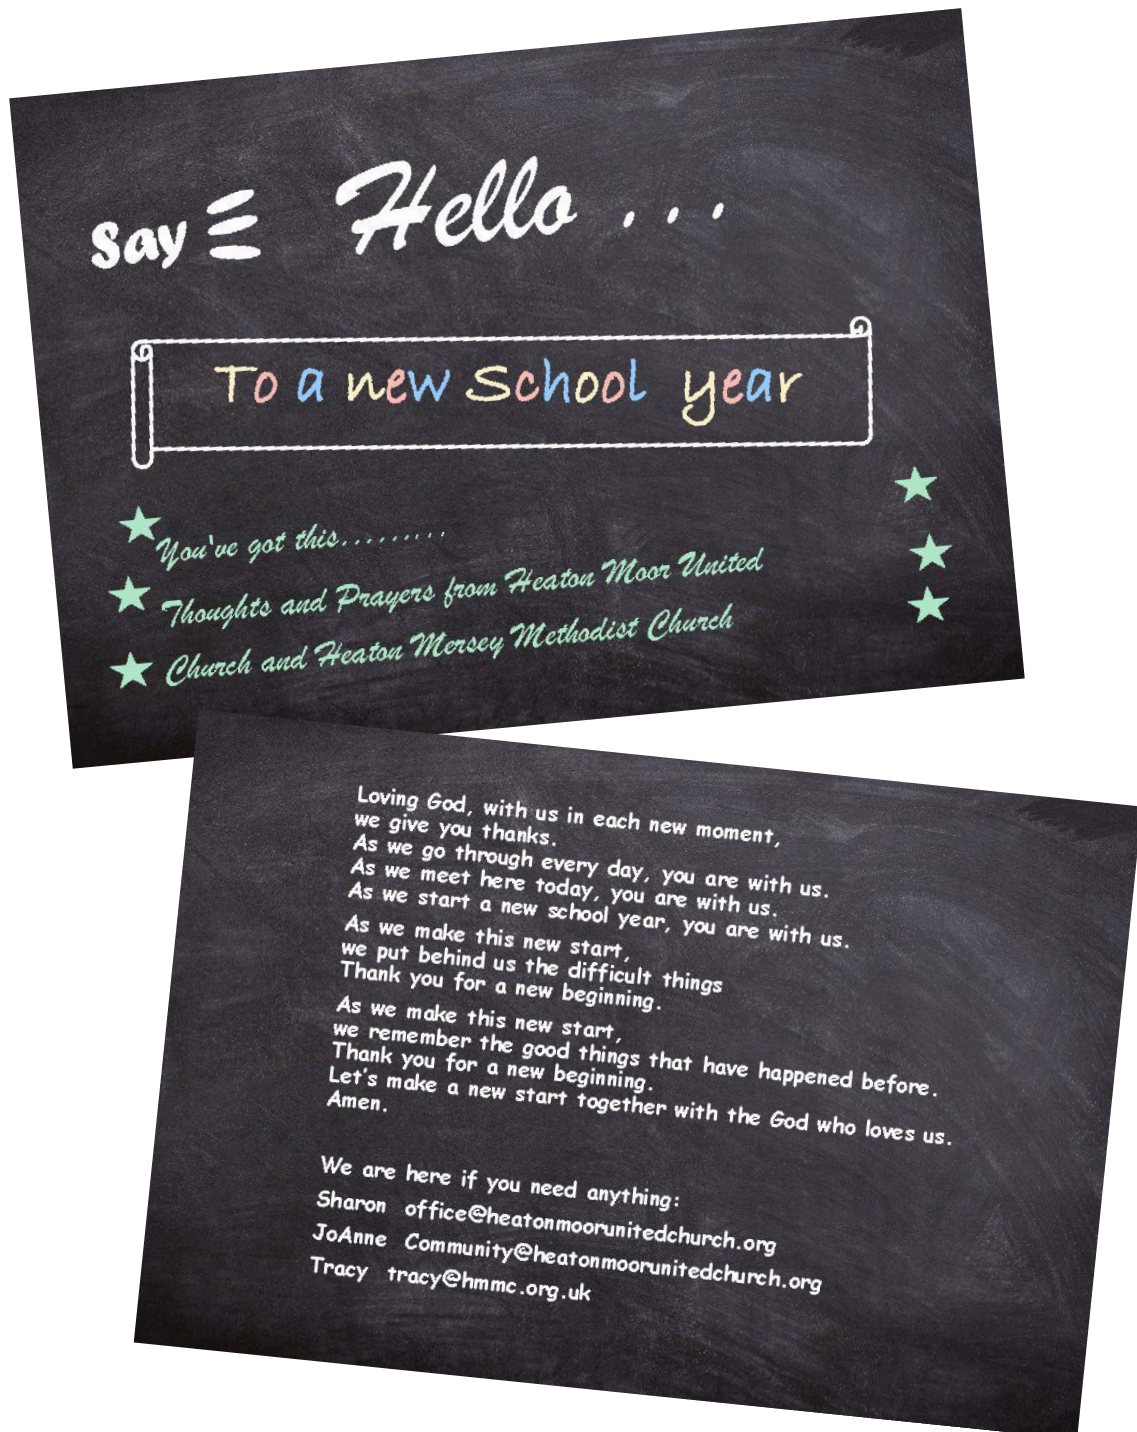 Say Hello ...
To a new School year
You've got this.........
Thoughts and Prayers from Heaton Moor United
Church and Heaton Mersey Methodist Church
Loving God, with us in each new moment,
we give you thanks.
As we go through every day, you are with us.
As we meet here today, you are with us.
As we start a new school year, you are with us.
As we make this new start,
we put behind us the difficult things
Thank you for a new beginning.
As we make this new start,
we remember the good things that have happened before.
Thank you for a new beginning.
Let's make a new start together with the God who loves us.
Amen.
We are here if you need anything:
Sharon office@heatonmoorunitedchurch.org
JoAnne Community@heatonmoorunitedchurch.org
Tracy tracy@hmmc.org.uk